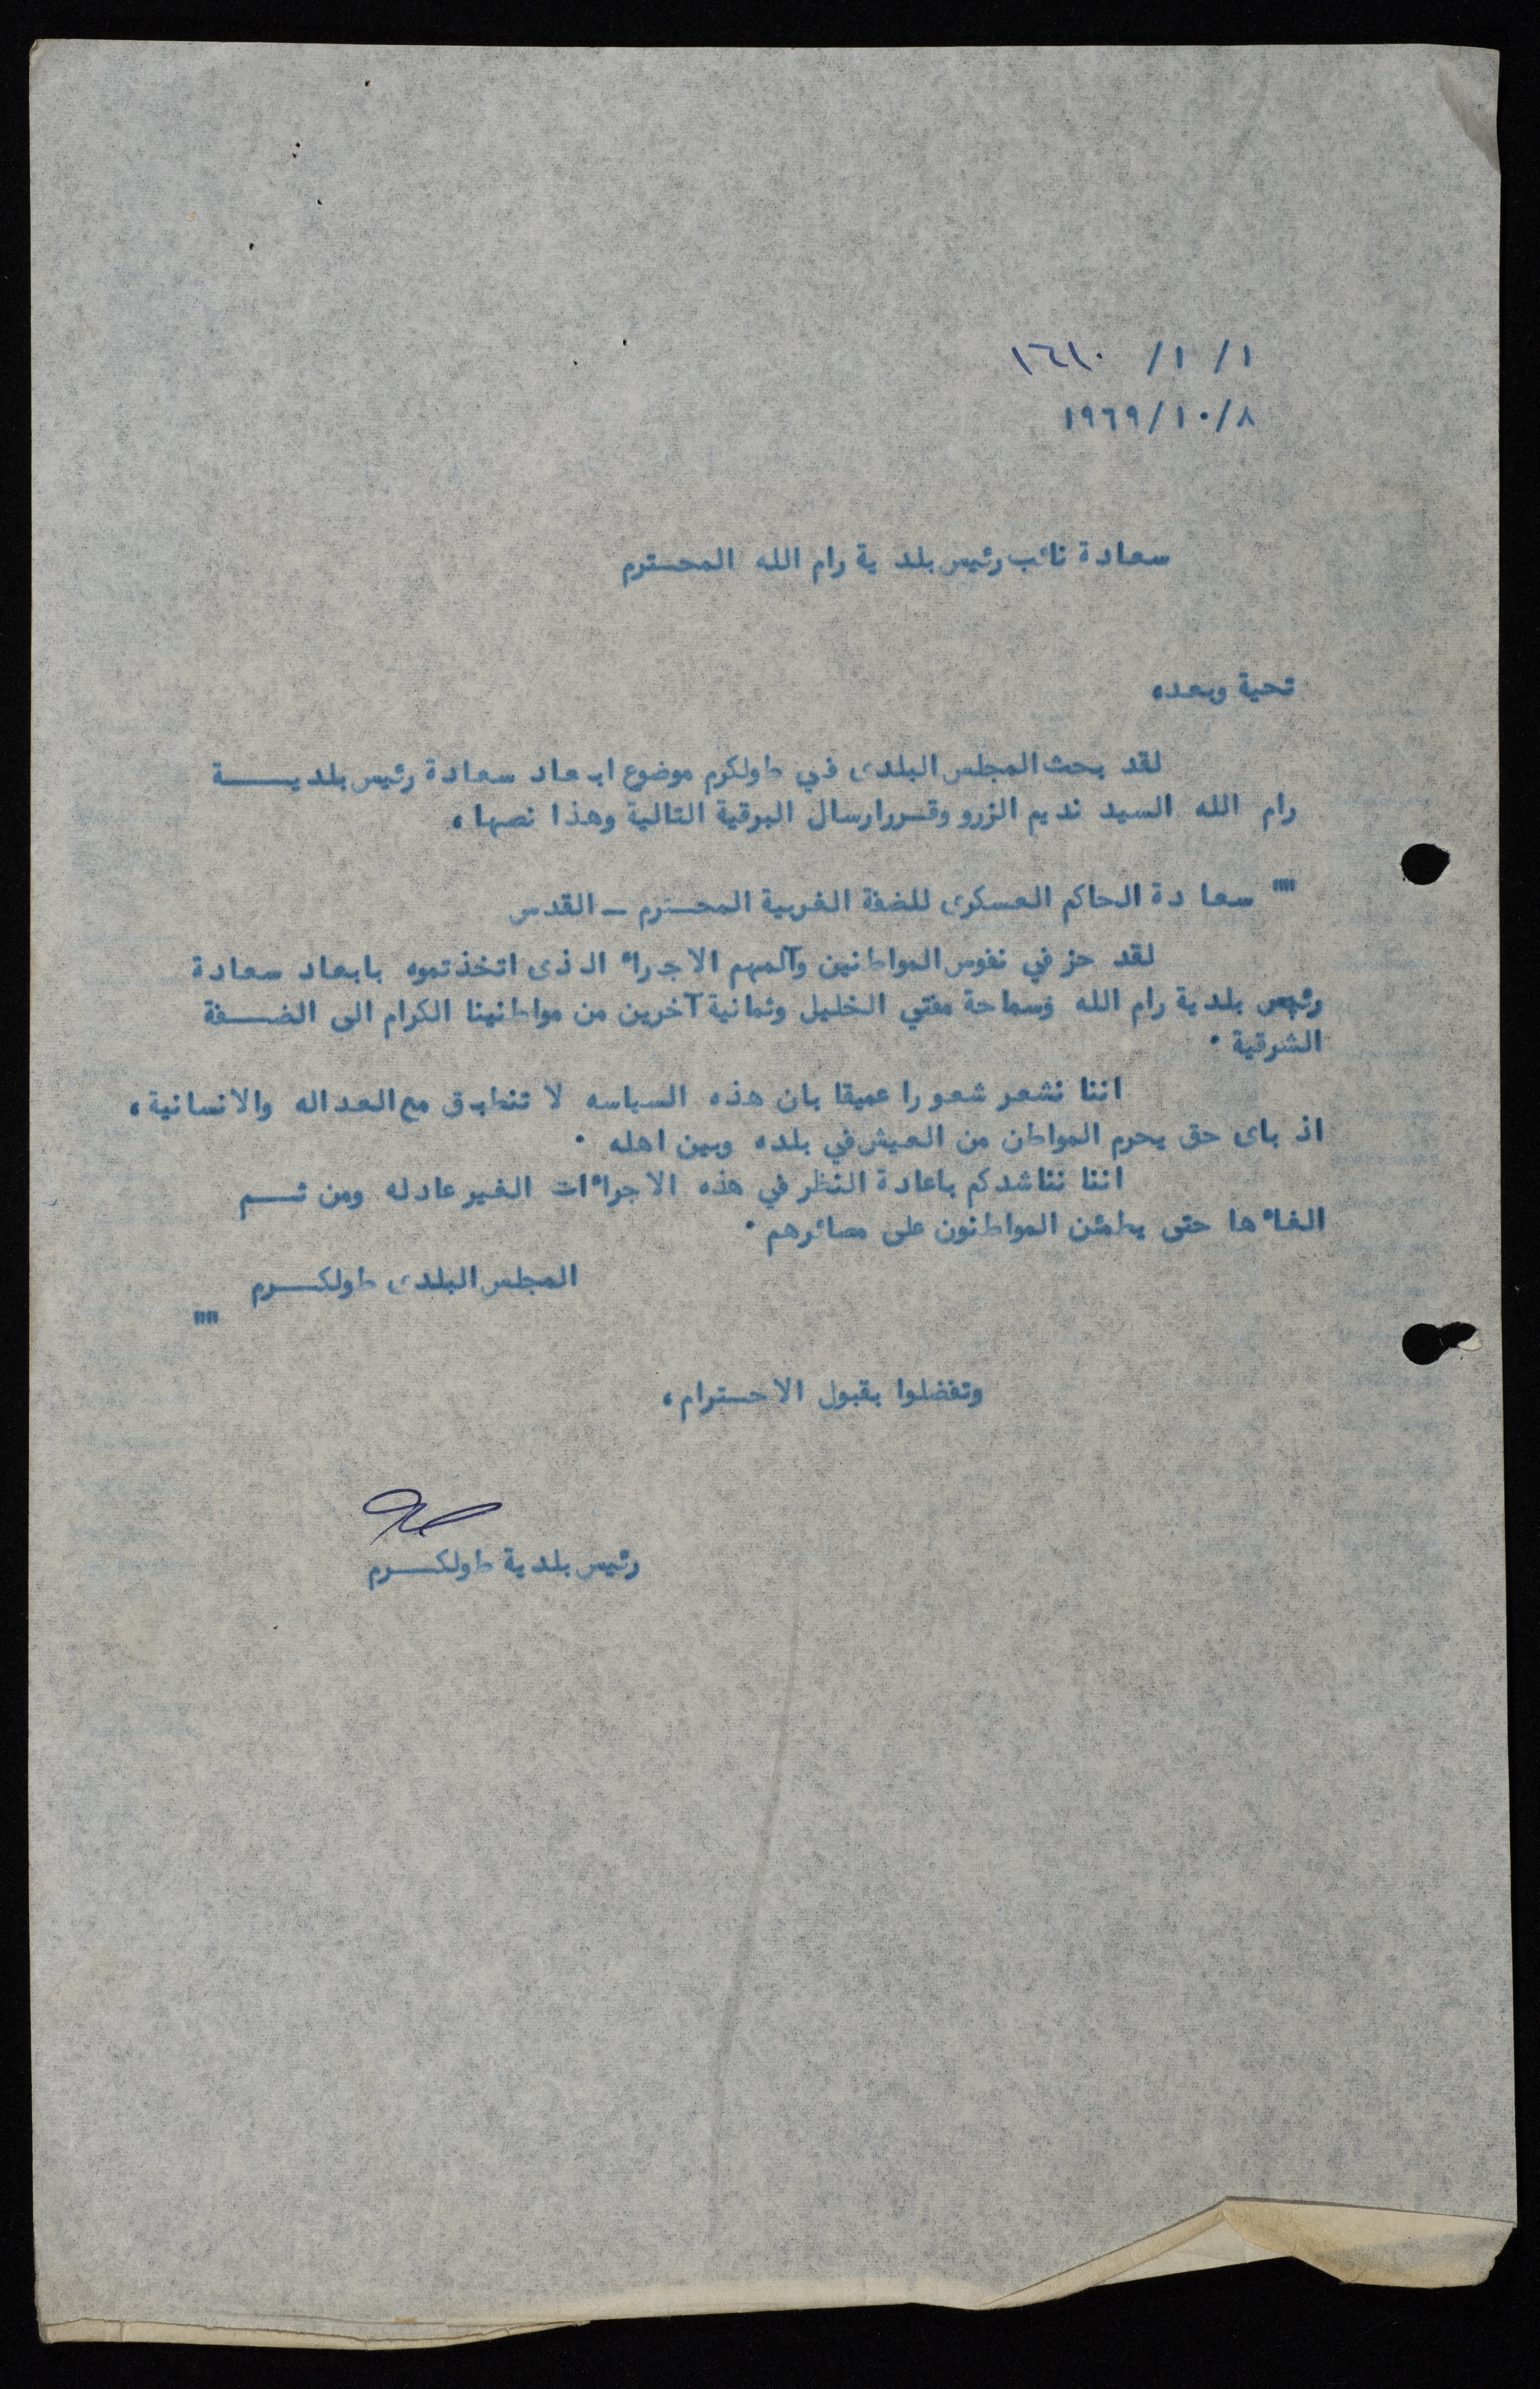 ١/ ١/ ١٦١٠
١٩٦٩/١٠/٨
سعادة نائب رئيس بلدية رام الله المحترم
تحية وبعده
لقد بحث المجلس البلدى في طولكرم موضوع ابعاد سعادة رئيس بلديــــة
رام الله السيد نديم الزرو وقررارسال البرقية التالية وهذا نصها،
"" سعادة الحاكم العسكرى للضفة الغربية المحترم ـ القدس
لقد حز في نفوس المواطنين وآلمهم الاجراء الذى اتخذتموه بابعاد سعادة
رئيس بلدية رام الله وسماحة مفتي الخليل وثمانية آخرين من مواطنينا الكرام الى الضــفة
الشرقية .
اننا نشعر شعورا عميقا بان هذه السياسه لا تنطبق مع العداله والانسانية،
اذ باى حق يحرم المواطن من العيش في بلده وبين اهله .
اننا نناشدكم باعادة النظر في هذه الاجراءات الغير عادله ومن ثــم
الغاءها حتى يطمئن المواطنون على مصائرهم .
المجلس البلدى طولكــرم
""
وتفضلوا بقبول الاحترام،
رئيس بلدية طولكــرم